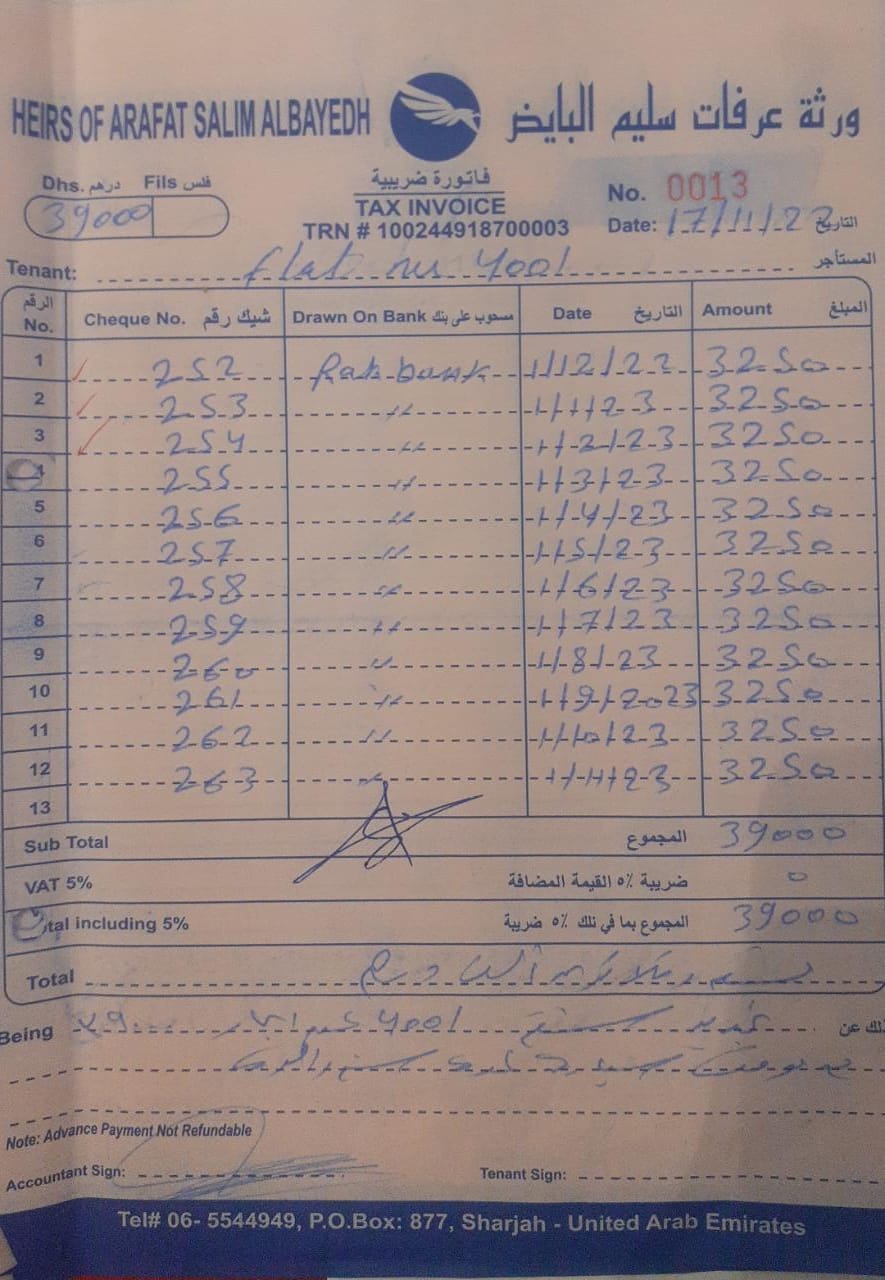 HEIRS OF ARAFAT SALIM ALBAYEDH ورثة عرفات سليم البايض
Dhs. درهم Fils فلس
39000
فاتورة ضريبية
TAX INVOICE
TRN # 100244918700003
No. 0013
Date: 17/11/22 التاريخ
Tenant: flat no 4001 المستأجر
الرقم No. Cheque No. شيك رقم Drawn On Bank مسحوب على بنك Date التاريخ Amount المبلغ
1 252 Rak bank 1/12/22 3250
2 253 " 1/1/23 3250
3 254 " 1/2/23 3250
4 255 " 1/3/23 3250
5 256 " 1/4/23 3250
6 257 " 1/5/23 3250
7 258 " 1/6/23 3250
8 259 " 1/7/23 3250
9 260 " 1/8/23 3250
10 261 " 1/9/2023 3250
11 262 " 1/10/23 3250
12 263 " 1/11/23 3250
13
Sub Total المجموع 39000
VAT 5% ضريبة ٥٪ القيمة المضافة 0
Total including 5% المجموع بما في ذلك ٥٪ ضريبة 39000
Total
Being سنة 4001 ذلك عن
Note: Advance Payment Not Refundable
Accountant Sign: Tenant Sign:
Tel# 06- 5544949, P.O.Box: 877, Sharjah - United Arab Emirates